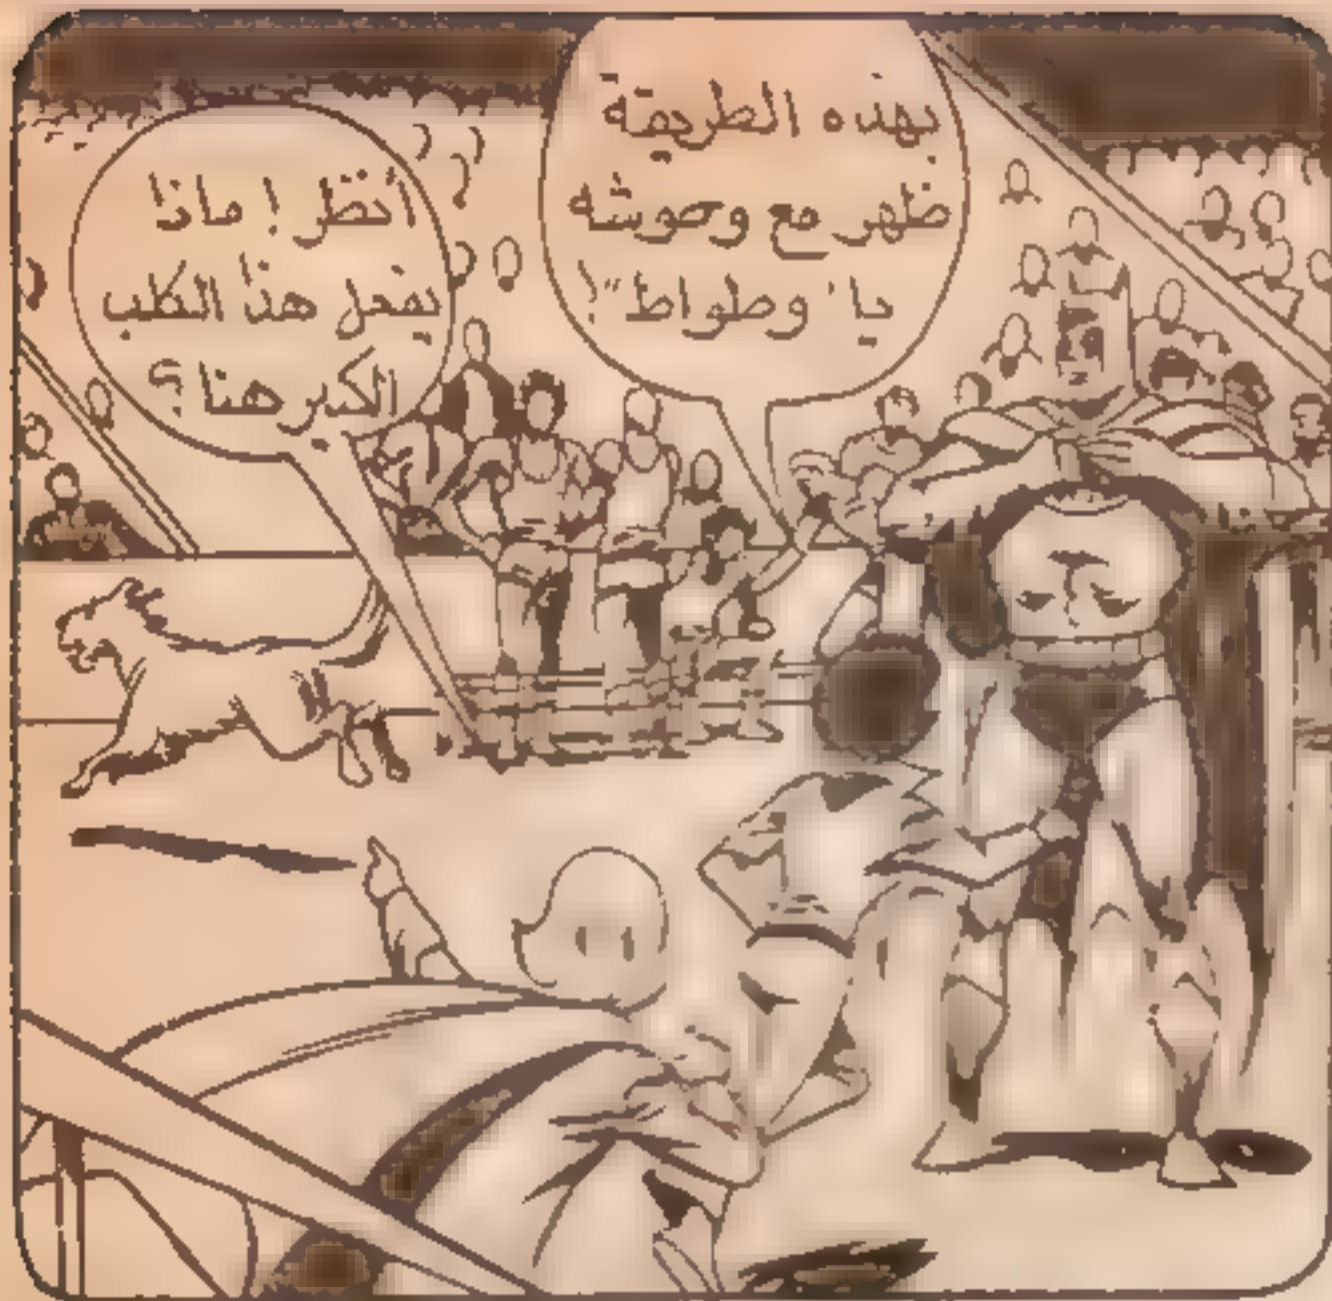 بهذه الطريقة
ظهر مع وحوشه
يا "وطواط"!
أنظر! ماذا
يفعل هذا الكلب
الكبير هنا؟